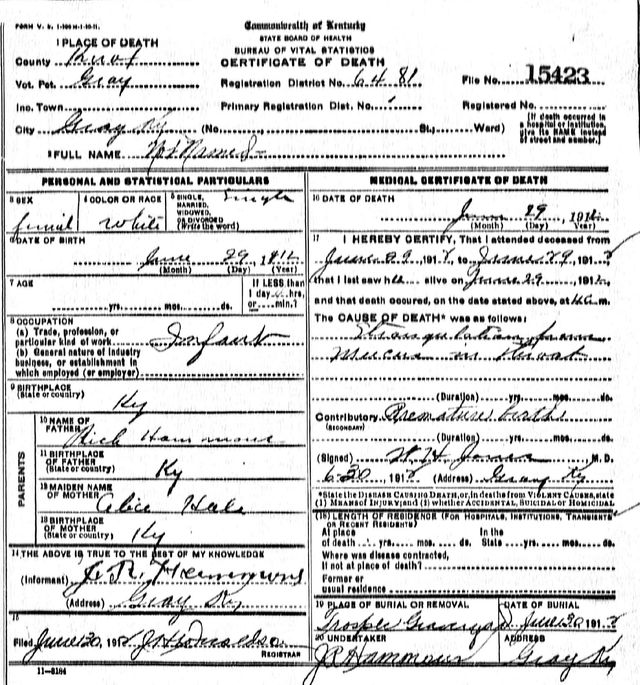 FORM V. S. 1-100M-1-10-11.
Commonwealth of Kentucky
STATE BOARD OF HEALTH
BUREAU OF VITAL STATISTICS
CERTIFICATE OF DEATH
1 PLACE OF DEATH
County Knox
Vot. Pct. Gray
Inc. Town
City Gray Ky (No. St.; Ward)
Registration District No. 6481
Primary Registration Dist. No.
File No. 15423
Registered No.
[If death occurred in
a hospital or institution,
give its NAME instead
of street and number.]
2 FULL NAME Not Named
PERSONAL AND STATISTICAL PARTICULARS
3 SEX
4 COLOR OR RACE White
5 SINGLE, MARRIED, WIDOWED, OR DIVORCED (Write the word) Single
6 DATE OF BIRTH
June 29
(Month) (Day) (Year)
7 AGE
yrs. mos. ds.
If LESS than
1 day hrs.
or min.?
8 OCCUPATION
(a) Trade, profession, or
particular kind of work Infant
(b) General nature of industry
business, or establishment in
which employed (or employer)
9 BIRTHPLACE
(State or country) Ky
PARENTS
10 NAME OF
FATHER Rick
11 BIRTHPLACE
OF FATHER
(State or country) Ky
12 MAIDEN NAME
OF MOTHER Alice Hale
13 BIRTHPLACE
OF MOTHER
(State or country) Ky
14 THE ABOVE IS TRUE TO THE BEST OF MY KNOWLEDGE
(Informant) J. R. Hammons
(Address) Gray Ky
15
Filed June 30, 191
REGISTRAR
11-8184
MEDICAL CERTIFICATE OF DEATH
16 DATE OF DEATH
June 29 191
(Month) (Day) (Year)
17 I HEREBY CERTIFY, That I attended deceased from
June 29, 191 to June 29, 191
that I last saw h alive on June 29, 191
and that death occured, on the date stated above, at 4 a m.
The CAUSE OF DEATH* was as follows:
Strangulation from
Mucus in throat
(Duration) yrs. mos. ds.
Contributory Premature birth
(SECONDARY)
(Duration) yrs. mos. ds.
(Signed) W H Jones M. D.
6-30 191 (Address) Gray Ky
*State the DISEASE CAUSING DEATH, or, in deaths from VIOLENT CAUSES, state
(1) MEANS OF INJURY; and (2) whether ACCIDENTAL, SUICIDAL or HOMICIDAL.
(18) LENGTH OF RESIDENCE (FOR HOSPITALS, INSTITUTIONS, TRANSIENTS
OR RECENT RESIDENTS)
At place
of death yrs. mos. ds.
In the
State yrs. mos. ds.
Where was disease contracted,
if not at place of death?
Former or
usual residence
19 PLACE OF BURIAL OR REMOVAL
Trosper Graveyard
DATE OF BURIAL
June 30 191
20 UNDERTAKER
J R Hammons
ADDRESS
Gray Ky